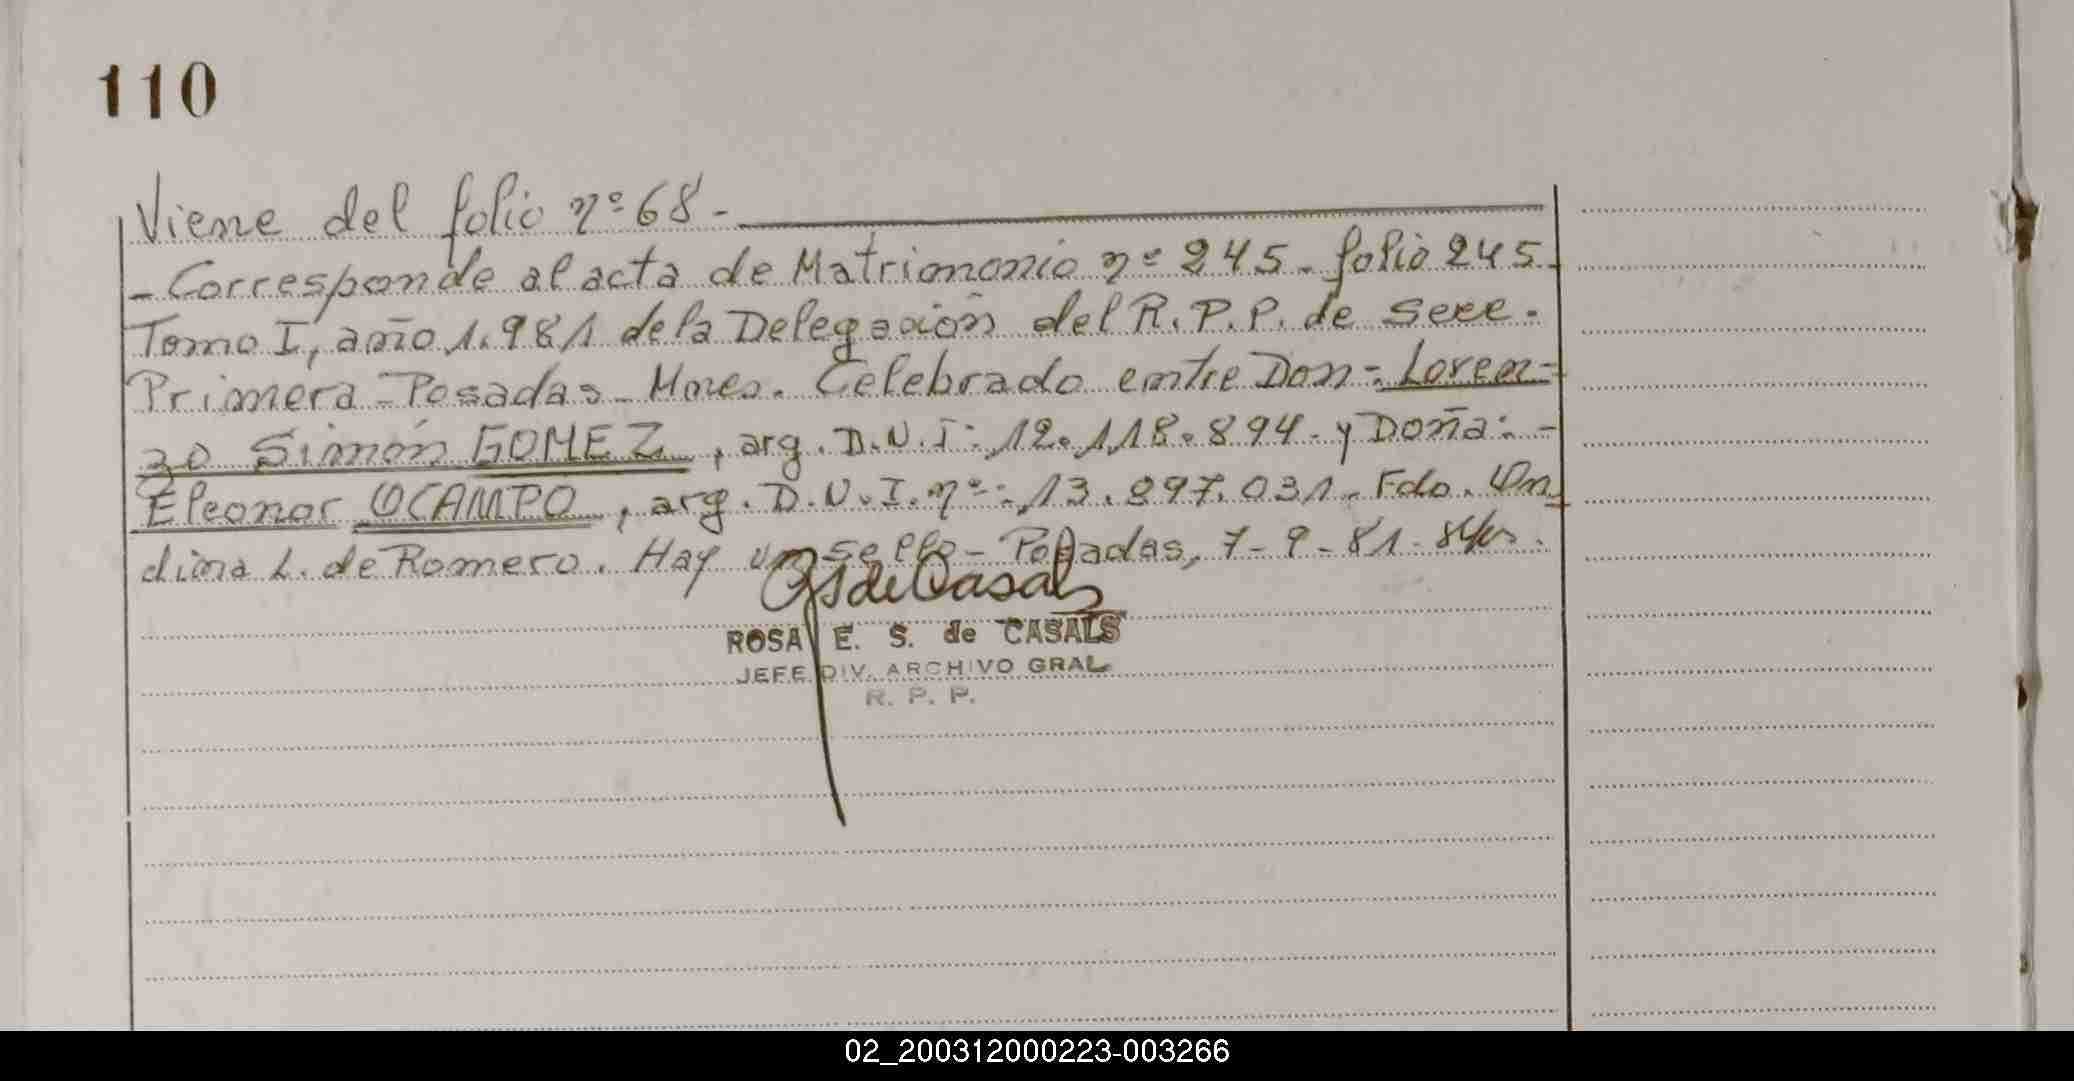 110
Viene del folio nº 68-
- Corresponde al acta de Matrimonio nº 245- folio 245-
Tomo I, año 1.981 de la Delegación del R.P.P. de Secc.
Primera - Posadas - Mnes. Celebrado entre Don - Loren-
zo Simón GOMEZ, arg. D.N.I: 12.118.894- y Doña: -
Eleonor OCAMPO, arg. D.N.I. nº: 13.897.031- Fdo. On-
dina L. de Romero. Hay un sello - Posadas, 7-9-81-
RS de Casals
ROSA E. S. de CASALS
JEFE DIV. ARCHIVO GRAL.
R. P. P.
02_200312000223-003266